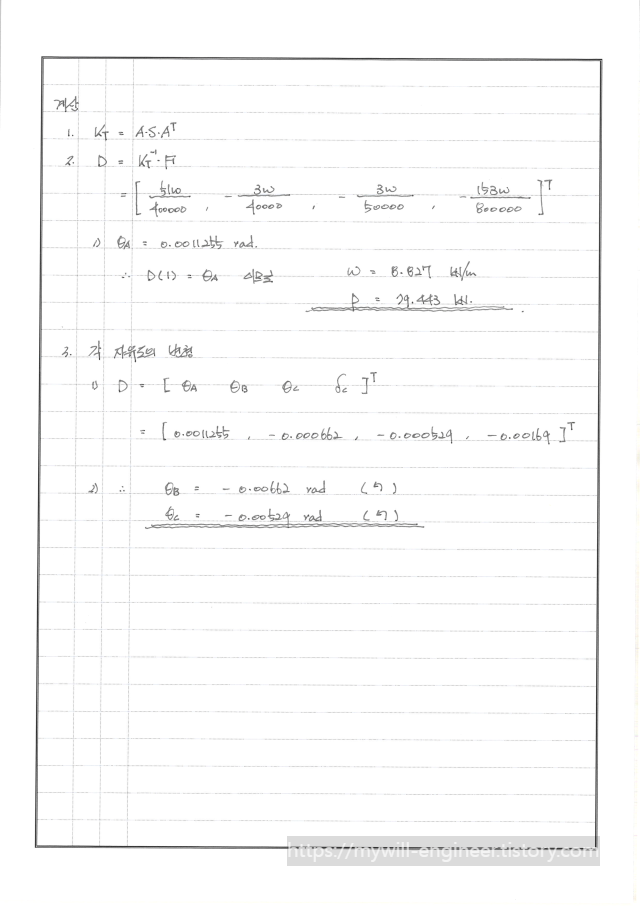 계산
1. K_T = A·S·A^T
2. D = K_T^-1·F
= [ 51w/40000 , - 3w/40000 , - 3w/50000 , - 153w/800000 ]^T
1) θA = 0.0011255 rad.
∴ D(1) = θA 이므로 w = 8.827 kN/m
P = 29.443 kN.
3. 각 자유도의 변형
1) D = [ θA θB θC δC ]^T
= [ 0.0011255 , -0.000662 , -0.000529 , -0.00169 ]^T
2) ∴ θB = -0.00662 rad (↰)
θC = -0.00529 rad (↰)
https://mywill-engineer.tistory.com